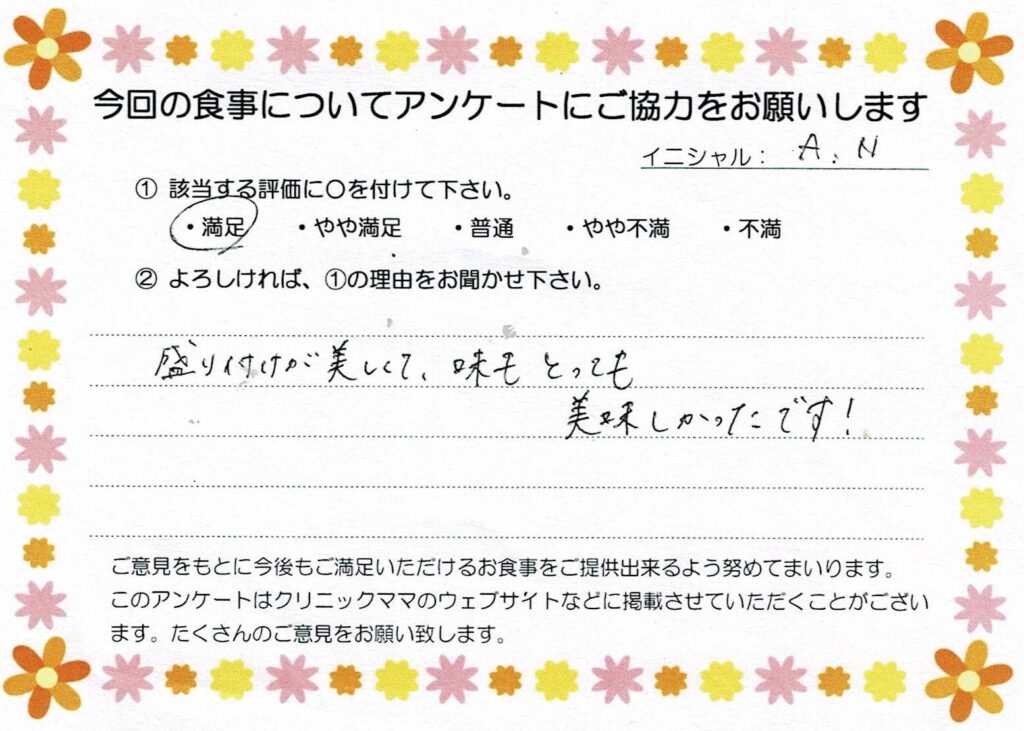 今回の食事についてアンケートにご協力をお願いします
イニシャル： A. N
① 該当する評価に〇を付けて下さい。
・満足 ・やや満足 ・普通 ・やや不満 ・不満
② よろしければ、①の理由をお聞かせ下さい。
盛り付けが美しくて、味もとっても
美味しかったです！
ご意見をもとに今後もご満足いただけるお食事をご提供出来るよう努めてまいります。
このアンケートはクリニックママのウェブサイトなどに掲載させていただくことがござい
ます。たくさんのご意見をお願い致します。